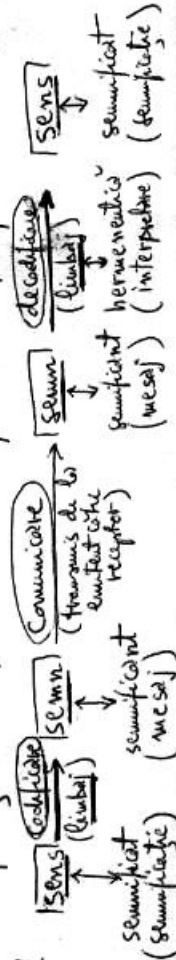 sens
semnificat
(semnificație)
Codificare
(limbaj)
semn
semnificant
(mesaj)
Comunicare
(transmis de la
emitent către
receptor)
semn
semnificant
(mesaj)
decodificare
(limbaj)
hermeneutică
(interpretare)
sens
semnificat
(semnificație)